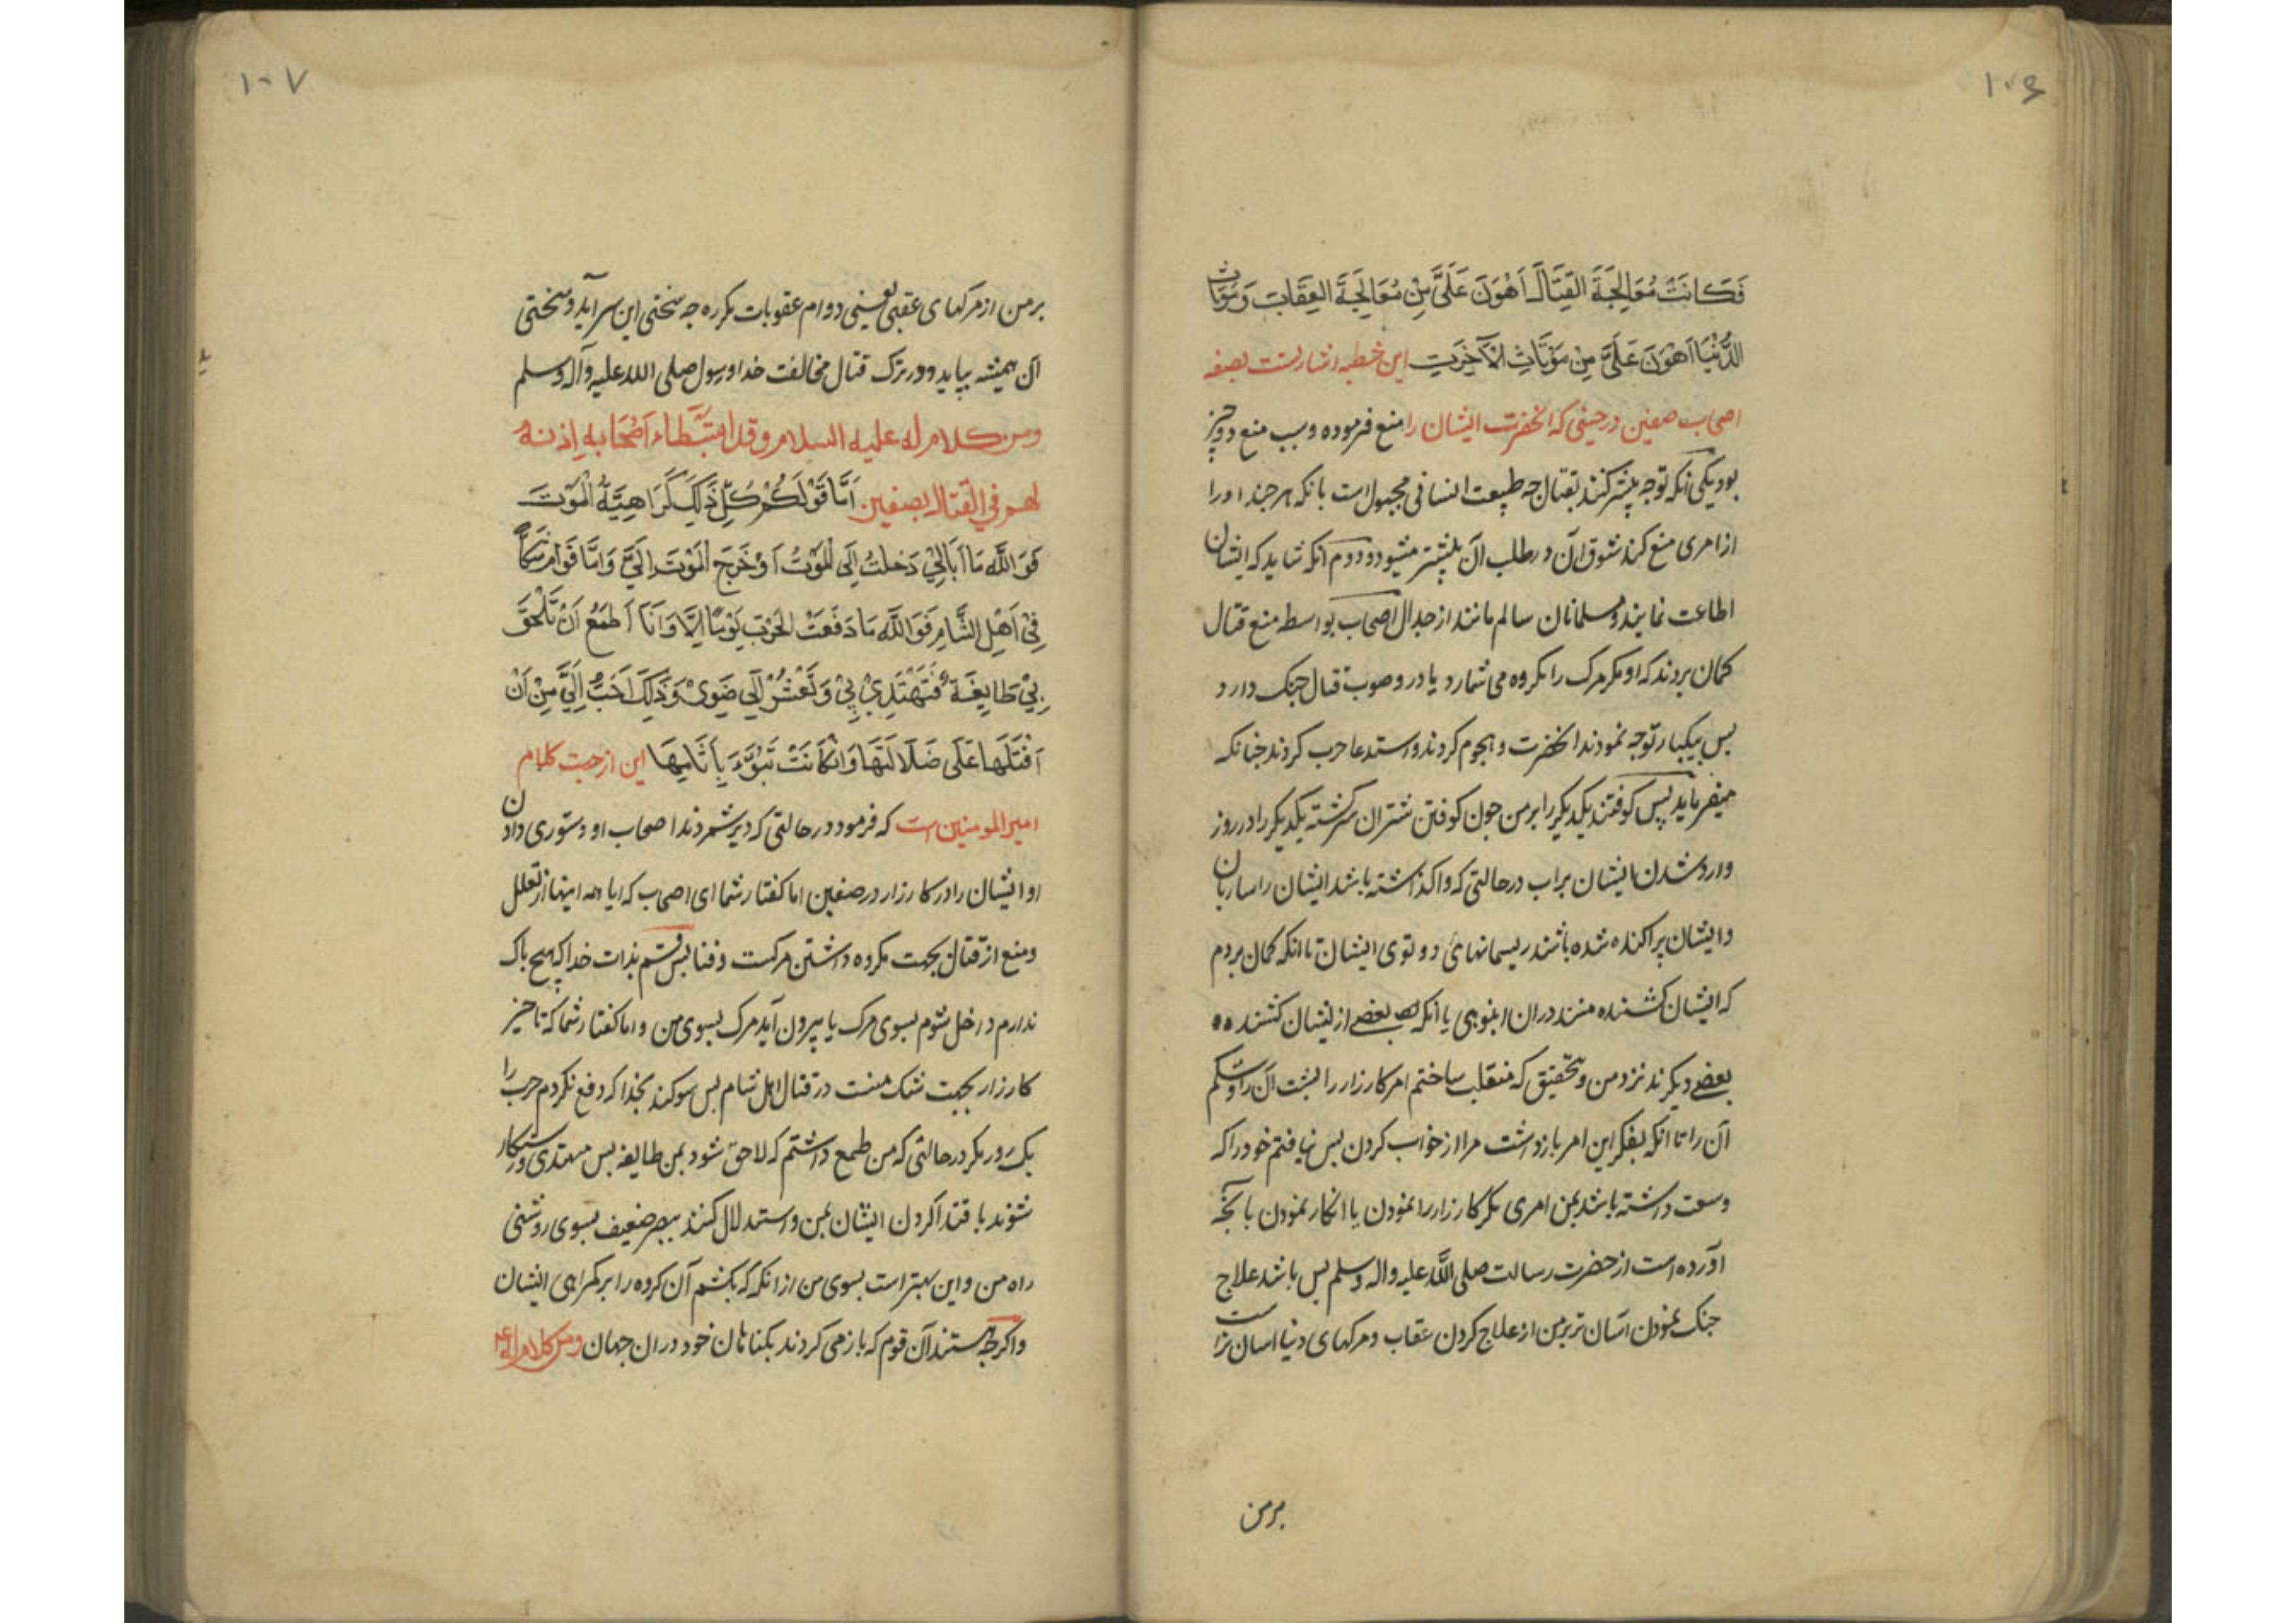 ۱۰۶
فَكَانَتْ مُعَالِجَةُ القِتَالِ اَهْوَنَ عَلَيَّ مِنْ مُعَالِجَةِ العِقَابِ وَمَوْتَاتُ
الدُّنْيَا اَهْوَنَ عَلَيَّ مِنْ مَوْتَاتِ الآخِرَتِ این خطبه اشارتست بصفه
اصحاب صفین در حینی که انحضرت ایشان را منع فرموده و سبب منع دو چیز
بود یکی انکه توجه بیشتر کنند بقتال چه طبیعت انسانی مجبول است بانکه هر چند او را
از امری منع کند شوق ان در طلب آن بیشتر میشود و دوم انکه شاید که ایشان
اطاعت نمایند و مسلمانان سالم مانند از جدال اصحاب بواسطه منع قتال
کمان بردند که او مکر مرک را مکروه می شمارد یا در وصوب قتال جنک دارد
بس بیکبار توجه نمودند انحضرت و هجوم کردند و استدعا حرب کردند جنانکه
میفرماید پس کوفتند یکدیکر را بر من جون کوفتن شتران سرکشته یکدیکر را در روز
وارد شدن ایشان براب در حالتی که واکذاشته باشد ایشان را ساربان
و ایشان پراکنده شده باشند ریسمانهای دو توی ایشان تا انکه کمان بردم
که ایشان کشنده منند در ان انبوهی یا انکه بعضی از ایشان کشنده
بعضی دیکرند نزد من و بتحقیق که منقلب ساختم امر کارزار را بشت آن را و شکم
آن را تا انکه بفکر این امر بازداشت مرا از خواب کردن بس نیافتم خود را که
وسعت داشته باشد بمن امری مکر کارزار را نمودن یا انکار نمودن بانچه
آورده است از حضرت رسالت صلی الله علیه واله وسلم بس باشد علاج
جنک نمودن اسان تر بر من از علاج کردن عقاب و مرکهای دنیا اسان تر است
بر من
۱۰۷
بر من از مرکهای عقبی یعنی دوام عقوبات مکرره جه سختی این سر آید و سختی
آن همیشه بپاید و در ترک قتال مخالفت خدا و رسول صلی الله علیه وآله وسلم
ومن كلام له عليه السلام وقد استبطاء اصحابه اذنه
لهم في القتال بصفين اَمَّا قَوْلَكُمْ كُلَّ ذَلِكَ كَرَاهِيَّةُ الْمَوْتَ
فَوَاللَّهِ مَا اُبَالِيْ دَخلتُ اِلَى الْمَوْتُ اَوْ خَرَجَ الْمَوْتَ اِلَيَّ وَامَّا قَوْلَكُمْ شَكّاً
فِيْ اَهْلِ الشَّامِ فَوَاللَّهِ مَا دَفَعَتْ الحَرْبَ يَوْمًا اِلَّا وَاَنَا اَطْمَعُ اَنْ تَلْحَقَ
بِيْ طَايِفَةٌ فَتَهْتَدِيْ بِيْ وَتَعْشُرُ اِلَي ضَوِئيْ وَذَلِكَ اَحَبُّ اِلَيَّ مِنْ اَنْ
اَقْتَلَهَا عَلَى ضَلَالَتهَا وَانْ كَانَتْ تَبُوْءُ بِاَثَامِهَا این از جهت کلام
امیرالمومنین است که فرمود در حالتی که دیر شمردند اصحاب او دستوری دادن
او ایشان را در کارزار در صفین اما کفتار شما ای اصحاب که ایا همه اینها از تعلل
ومنع از قتال بجهت مکروه داشتن مرکست و فنا بس قسم بذات خدا که هیچ باک
ندارم در اخل شوم بسوی مرک یا بیرون آید مرک بسوی من و اما کفتار شما که تاخیر
کارزار بجهت شک منست در قتال اهل شام بس سوکند بخدا که دفع نکردم حرب را
یک روز مکر در حالتی که من طمع داشتم که لاحق شود بمن طایفه بس مهتدی و رستکار
شوند باقتدا کردن ایشان بمن و استدلال کنند ببصر ضعیف بسوی روشنی
راه من و این بهتر است بسوی من از انکه که بکشم آن کروه را بر کمراهی ایشان
واکرچه هستند آن قوم که باز می کردند بکناهان خود در ان جهان ومن كلام له ع